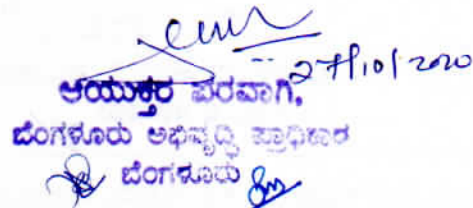 27/10/2020
ಆಯುಕ್ತರ ಪರವಾಗಿ.
ಬೆಂಗಳೂರು ಅಭಿವೃದ್ಧಿ ಪ್ರಾಧಿಕಾರ
ಬೆಂಗಳೂರು